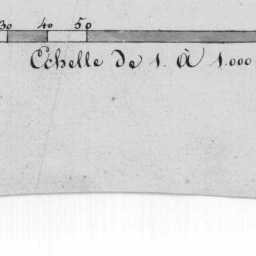 30 40 50
Echelle de 1. à 1.000